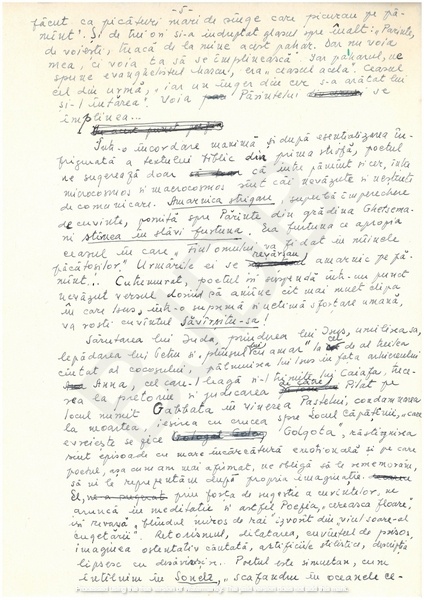 - 5 -
făcut ca picături mari de sînge care picurau pe pă-
mînt". Și de trei ori și-a îndreptat glasul spre înalt: „Părinte,
de voiești, treacă de la mine acest pahar. Dar nu voia
mea, ci voia ta să se împlinească. Iar paharul, ne
spune evanghelistul era, ceasul acela. Ceasul
cel din urmă, „iar un înger din cer s-a arătat lui
și-l întărea". Voia Părintelui se
împlinea...
Într-o încordare maximă și după esențializarea în-
frigurată a textului biblic din prima strofă, poetul
ne sugerează doar că între pămînt și cer, între
microcosmos și macrocosmos sînt căi nevăzute și neștiute
de comunicare. Amarnica strigare, superbă împerechere
de cuvinte, pornită spre Părinte din grădina Ghetsema-
ni stîrnea în slăvi furtune. Era furtuna ce apropia
ceasul în care „Fiul omului va fi dat în mîinile
păcătoșilor". Urmările ei se amarnic pe pă-
mînt... Cutremurat, poetul în suspensă într-un punct
nevăzut versul dornic să amîne cît mai mult clipa
în care Isus, într-o supremă și ultimă sforțare umană,
va rosti cuvîntul Săvîrșitu-s-a!
Sărutarea lui Iuda, prinderea lui Isus, umilirea sa,
lepădarea lui Petru și „plînsul lui cu amar" la cel de al treilea
cîntat al cocoșului, pătimirea lui Isus în fața arhiereului
Anna, cel care-l leagă și-l trimite lui Caiafa, duce-
rea la pretoriu și judecarea de către Pilat pe
locul numit Gabbata în vinerea Paștelui, condamnarea
la moarte, ieșirea cu crucea spre locul Căpățînii, „care
evreiește se zice Golgota", răstignirea
sînt episoade cu mare încărcătură emoțională și pe care
poetul, așa cum am mai afirmat, ne obligă să le rememorăm,
să ni le reprezentăm după propria imaginație.
El, prin forța de sugestie a cuvintelor, ne
aruncă în meditație și astfel Poezia, „cerească floare",
își revarsă „blîndul miros de rai" izvorît din „viul soare-al
cugetării". Retorismul, dilatarea, cuvîntul de prisos,
imaginea ostentativ căutată, artificiile stilistice, desuetia
lipsesc cu desăvîrșire. Poetul este simultan, cum
întîlnim în Sonete, „scafandru în oceanele ce-